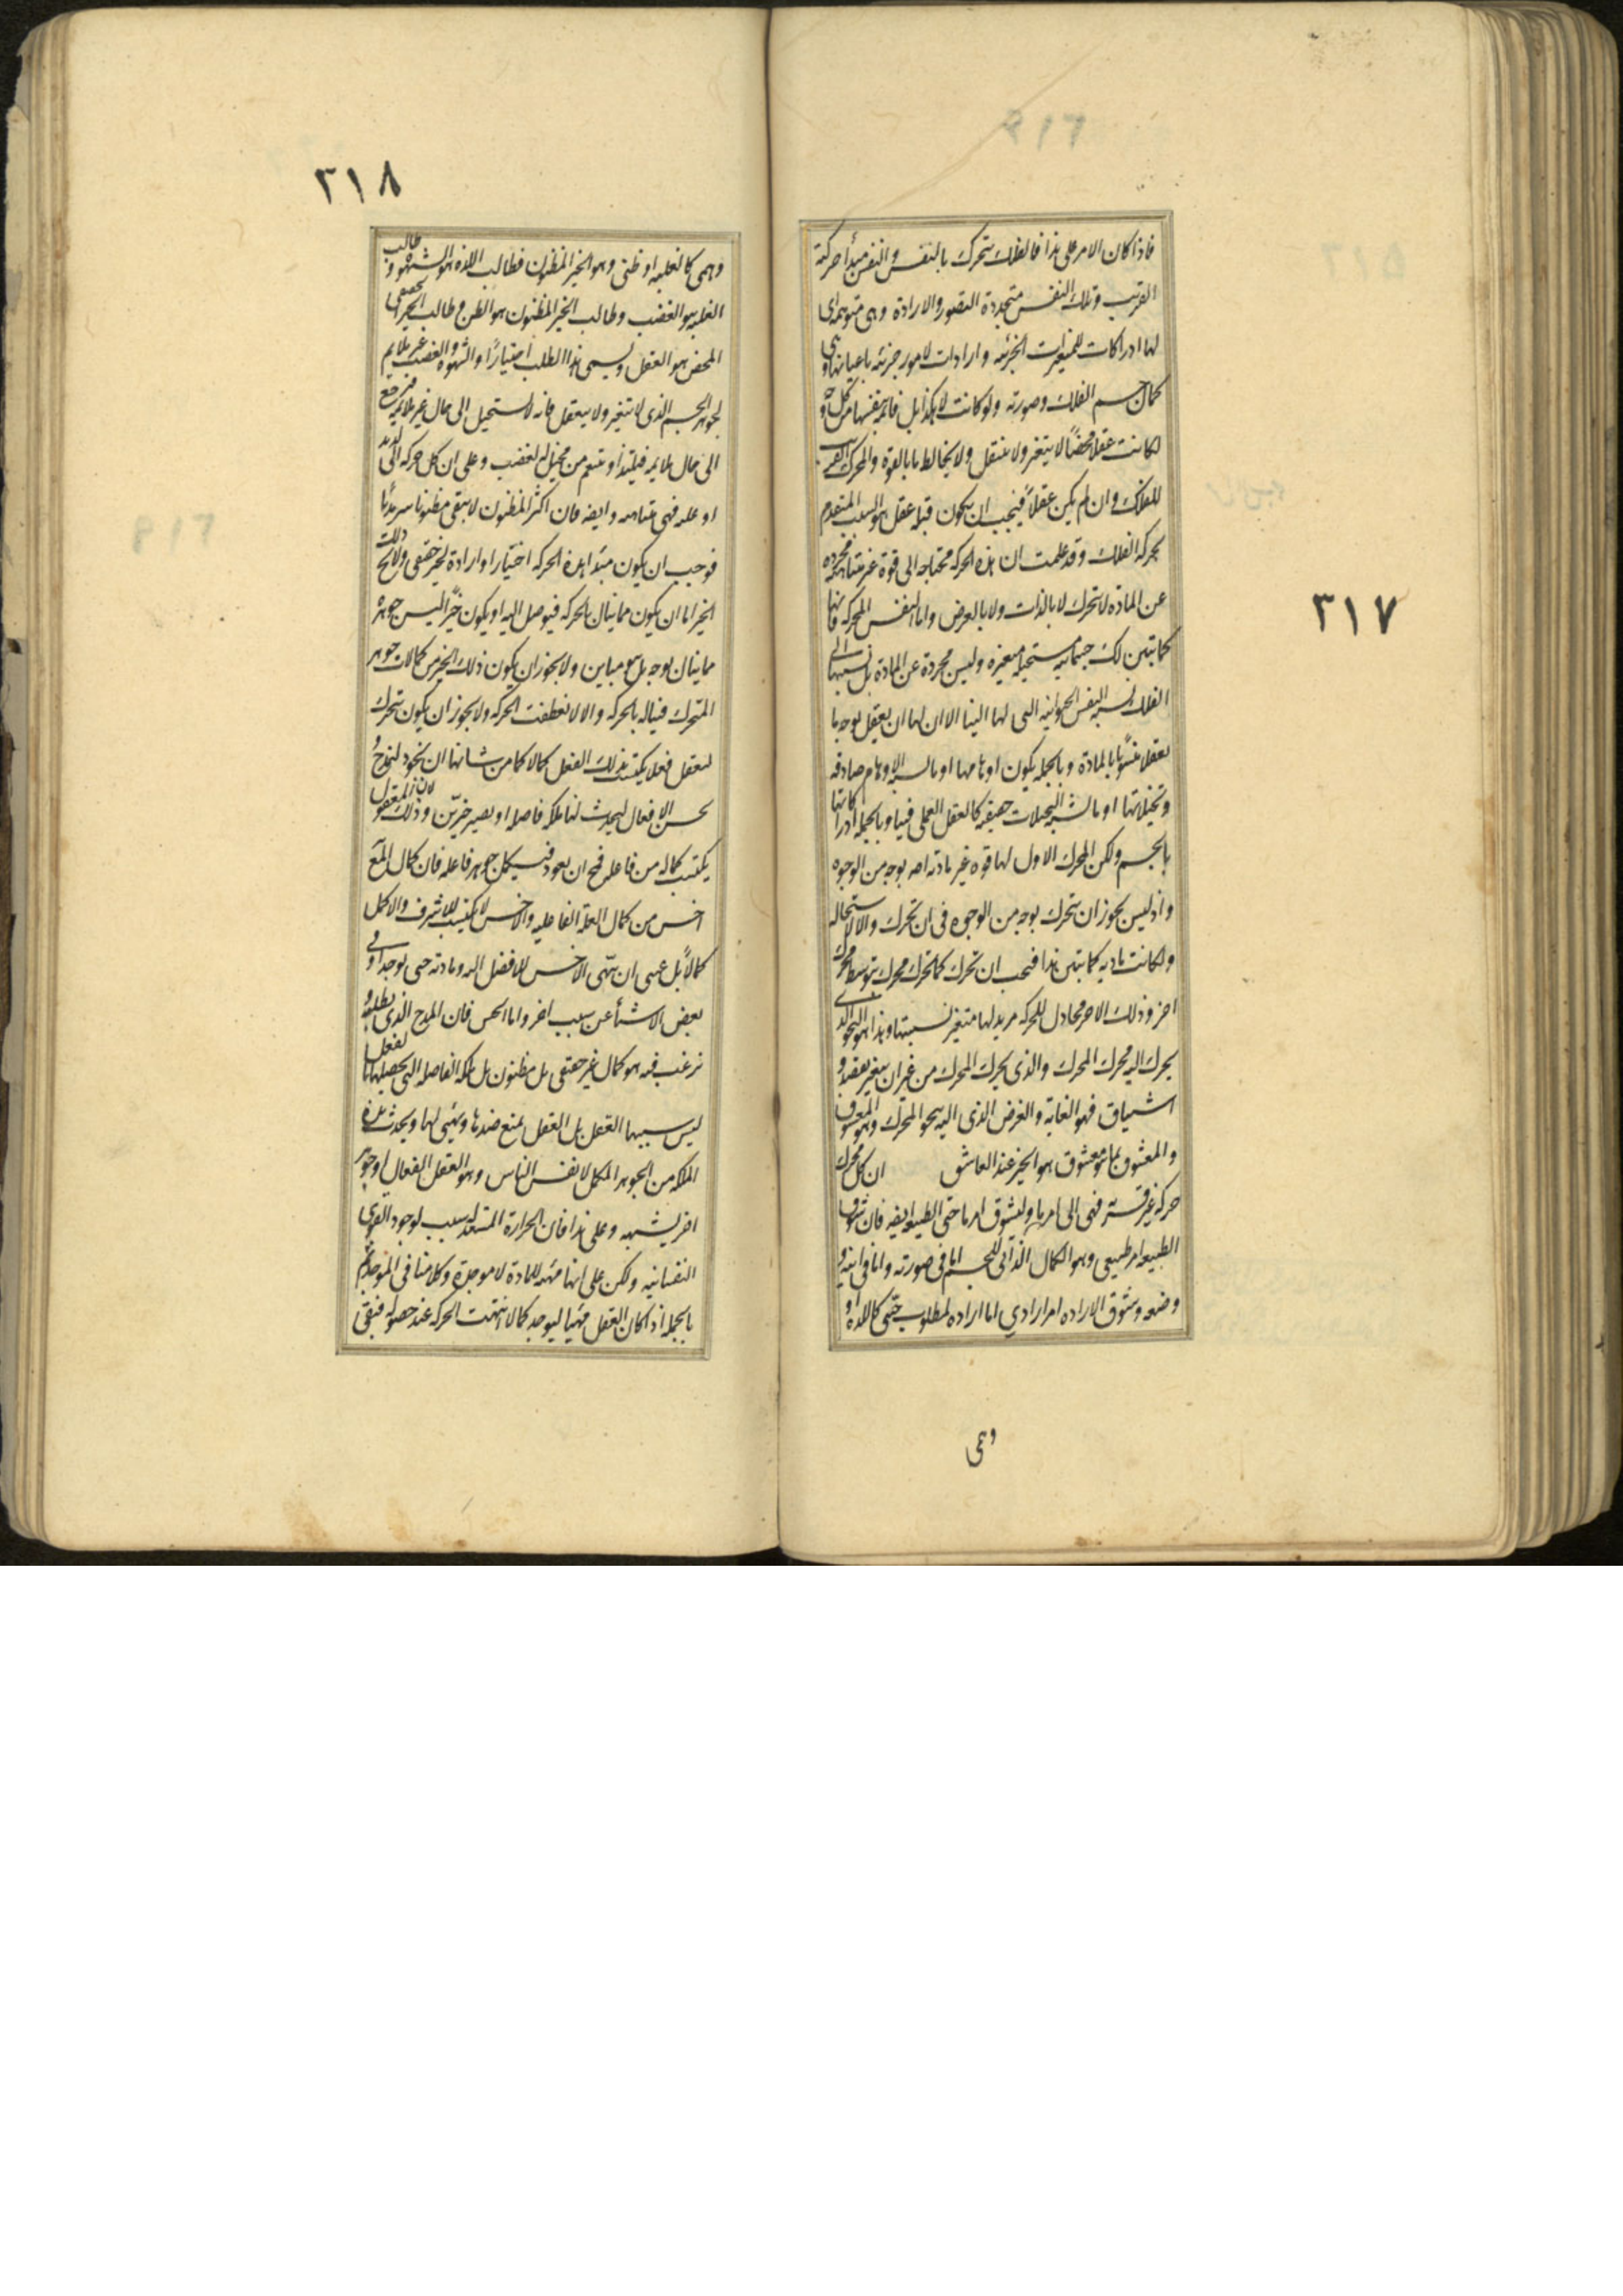 ٣١٧
فاذا كان الامر على هذا فالفلك يتحرك بالنفس والنفس مبدأ حركته
القريب وتلك النفس متجددة التصور والارادة وهى متوهمة اى
لها ادراكات للمتغيرات الجزئيه وارادات لامور جزئيه باعيانها وهى
كمال جسم الفلك وصورته ولو كانت لا هكذا بل قائمة بنفسها من كل وجه
لكانت عقلا محضًا لا يتغير ولا ينتقل ولا يخالط ما بالقوة والمحرك القريب
للفلك وان لم يكن عقلاً فيجب ان يكون قبله عقل هو السبب المتقدم
لحركة الفلك وقد علمت ان هذه الحركه محتاجه الى قوة غير متناهيه مجرده
عن المادة لا تتحرك لا بالذات ولا بالعرض واما النفس المحركه فانها
كما تبين لك جسمانيه مستحيله متغيره وليس مجردة عن المادة بل نسبتها الى
الفلك نسبه النفس الحيوانيه التى لها الينا الا ان لها ان يعقل بوجه ما
تعقلا مشوبًا بالمادة وبالجمله يكون اوهامها او ما يشبه الاوهام صادقه
وتخيلاتها او ما يشبه التخيلات حقيقه كالعقل العملى فينا وبالجمله ادراكاتها
بالجسم ولكن المحرك الاول لها قوه غير ماديه اصلا بوجه من الوجوه
واذ ليس يجوز ان يتحرك بوجه من الوجوه فى ان تحرك والا لاستحاله
ولكانت ماديه كما تبين هذا فيجب ان تحرك كما تحرك محرك بتوسط محرك
اخر وذلك الاخر محاول للحركه مريد لها متغير بسببها وهذا هو النحو الذى
يحرك اليه محرك المحرك والذى يحرك المحرك من غير ان يتغير بقصد و
اشتياق فهو الغاية والغرض الذى اليه ينحو المحرك وهو المعشوق
والمعشوق بما هو معشوق هو الخير عند العاشق ان كل محرك
حركة غير قسريه فهى الى امر ما ولشوق امر ما حتى الطبيعه ايضه فان شوق
الطبيعه امر طبيعى وهو الكمال الذاتى للجسم اما فى صورته واما فى اينه و
وضعه وشوق الاراده امر ارادي اما اراده لمطلوب حسى كاللذه او
وهمى
٣١٨
وهمى كالغلبه او ظنى وهو الخير المظنون فطالب اللذه هو الشهوه وطالب
الغلبه هو الغضب وطالب الخير المظنون هو الظن وطالب الخير الحقيقى
المحض هو العقل ويسمى هذا الطلب اختيارًا والشهوه والغضب غير ملايم
لجوهر الجسم الذى لا يتغير ولا ينفعل فانه لا يستحيل الى حال غير ملايمه فيرجع
الى حال ملايمه فيلتذ او ينتقم من مخيل له فيغضب وعلى ان كل حركه الى لذيذ
او غلبه فهى متناهيه وايضه فان اكثر المظنون لا يبقى مظنونا سرمديًا
فوجب ان يكون مبدا هذه الحركه اختيارا وارادة لخير حقيقى ولا يخ ذلك
الخير اما ان يكون مما ينال بالحركه فيوصل اليه او يكون خيرًا ليس جوهره
مما ينال بوجه بل هو مباين ولا يجوز ان يكون ذلك الخير من كمالات جوهر
المتحرك فيناله بالحركه والا لانقطعت الحركه ولا يجوز ان يكون يتحرك
ليفعل فعلا يكتسب بذلك الفعل كمالا كما من شاننا ان نجود لنمدح و
نحسن الافعال ليحدث لنا ملكه فاضله او نصير خيرين وذلك لان المفعول
يكتسب كماله من فاعله فمح ان يعود فيكمل جوهر فاعله فان كمال المع
اخس من كمال العلة الفاعليه والاخس لا يكسب الاشرف والاكمل
كمالاً بل عسى ان يهيى الاخس للافضل اليه ومادته حتى يوجد هو فى
بعض الاشيأ عن سبب اخر واما نحن فان المدح الذى نطلبه و
نرغب فيه هو كمال غير حقيقى بل مظنون بل الملكه الفاضله التى نحصلها بالفعل
ليس سببها الفعل بل الفعل يمنع ضدها ويهيى لها ويحدث هذه
الملكه من الجوهر المكمل لانفس الناس وهو العقل الفعال او جوهر
اخر يشبهه وعلى هذا فان الحرارة المعتدله سبب لوجود القوى
النفسانيه ولكن على انها مهيه للمادة لا موجدة وكلامنا فى الموجد ثم
بالجمله اذا كان الفعل مهيا ليوجد كمالا انتهت الحركه عند حصوله فبقى